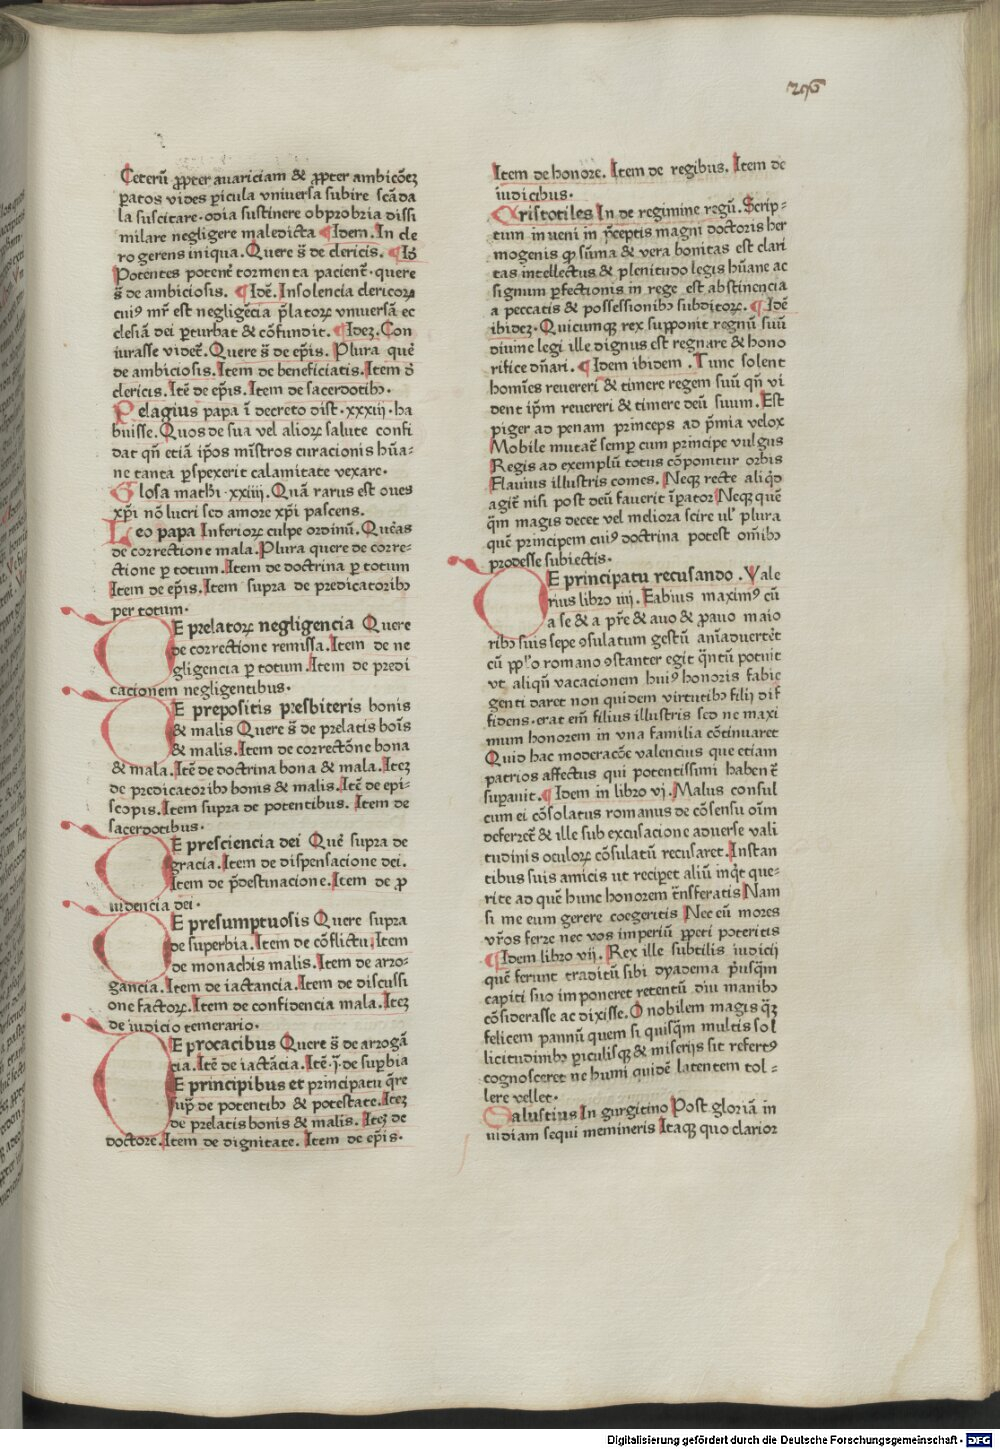 296
Ceterũ ꝓpter auariciam & ꝓpter ambicõeꝫ
ꝑatos vides ꝑicula vniuersa subire scãda
la suscitare·odia sustinere obprobria dissi
milare negligere maledicta ¶Idem.In cle
ro gerens iniqua.Quere s̃ de clericis. ¶Id̃
Potentes potent̃ tormenta pacient̃·quere
s̃ de ambiciosis. ¶Idẽ.Insolencia clericoꝝ
cuiꝰ mr̃ est negligẽcia p̃latoꝝ vniuersã ec
clesiã dei ꝑturbat & cõfundit.¶Ideꝫ.Con
iurasse videt̃.Quere s̃ de ep̃is. Plura querẽ
de ambiciosis.Item de beneficiatis.Item d̃
clericis.Itẽ de ep̃is.Item de sacerdotibꝫ.
Pelagius papa ĩ decreto dist·xxxiij·ha
buisse.Quos de sua vel alioꝝ salute confi
dat qñ etiã ip̃os mĩstros curacionis hũa-
ne tanta ꝑspexerit calamitate vexare.
Glosa math̃i·xxiiij.Quã rarus est oues
xp̃i nõ lucri sed amore xp̃i pascens.
Leo papa Inferioꝝ culpe ordinũ.Querẽas
de correctione mala.Plura quere de corre-
ctione ꝑ totum.Item de doctrina ꝑ totum
Item de ep̃is.Item supra de predicatoribꝫ
per totum.
DE prelatoꝝ negligencia Quere
de correctione remissa.Item de ne
gligencia ꝑ totum.Item de predi
cacionem negligentibus.
DE prepositis presbiteris bonis
& malis Quere s̃ de prelatis boĩs
& malis.Item de correctõne bona
& mala.Itẽ de doctrina bona & mala.Iteꝫ
de predicatoribꝫ bonis & malis.Itẽ de epi-
scopis.Item supra de potentibus.Item de
sacerdotibus.
DE presciencia dei Querẽ supra de
gracia.Item de dispensacione dei.
Item de p̃destinacione.Item de ꝓ
uidencia dei.
DE presumptuosis Quere supra
de superbia.Item de cõflictu.Item
de monachis malis.Item de arro-
gancia.Item de iactancia.Item de discussi
one factoꝝ.Item de confidencia mala.Iteꝫ
de iudicio temerario.
DE procacibus Quere s̃ de arrogã
cia.Itẽ de iactãcia.Itẽ·j·de suꝑbia
DE principibus et principatu q̃re
sup̃ de potentibꝫ & potestate.Iteꝫ
de prelatis bonis & malis. Iteꝫ de
doctore.Item de dignitate. Item de ep̃is.
Item de honore. Item de regibus. Item de
iudicibus.
Aristotiles In de regimine regũ.Scrip-
tum inueni in p̃ceptis magni doctoris her
mogenis ꝙ sũma & vera bonitas est clari
tas intellectus & plenitudo legis hũane ac
signum ꝑfectionis in rege est abstinencia
a peccatis & possessionibꝫ subditoꝝ.¶Idẽ
ibideꝫ.Quicumqꝫ rex supponit regnũ suũ
diuine legi ille dignus est regnare & hono
rifice dñari.¶Idem ibidem .Tunc solent
homĩes reuereri & timere regem suũ qñ vi
dent ip̃m reuereri & timere deũ suum.Est
piger ad penam princeps ad p̃mia velox
Mobile mutat̃ semꝑ cum principe vulgus
Regis ad exemplũ totus cõponitur orbis
Flauius illustris comes. Neqꝫ recte aliq̃d
agit̃ nisi post deũ fauerit ĩꝑator Neqꝫ quẽ
q̃m magis decet vel meliora scire ul̓ plura
quẽ principem cuiꝰ doctrina potest om̃ibꝫ
prodesse subiectis.
DE principatu recusando .Vale
rius libro iiij.Fabius maximꝰ cũ
a se & a pr̃e & auo & ꝓauo maio
ribꝫ suis sepe ꝯsulatum gestũ anĩaduertẽt
cũ pp̃l'o romano ꝯstanter egit q̃ntũ potuit
vt aliqñ vacacionem huiꝰ honoris fabie
genti daret non quidem virtutibꝫ filij dif
fidens·erat em̃ filius illustris sed ne maxi
mum honorem in vna familia cõtinuaret
Quid hac moderacõe valencius que etiam
patrios affectus qui potentissimi habent̃
suꝑauit.¶Idem in libro vj.Malus consul
cum ei cõsolatus romanus de cõsensu oĩm
deferret̃ & ille sub excusacione aduerse vali
tudinis oculoꝝ cõsulatũ recusaret.Instan
tibus suis amicis ut reciꝑet aliũ inq̃t que-
rite ad quẽ hunc honorem t̃nsferatis Nam
si me eum gerere coegeritis Nec eũ mores
vr̃os ferre nec vos imperiũ ꝓpeti poteritis
¶Idem libro vij. Rex ille subtilis iudicij
quẽ ferunt traditũ sibi dyadema p̃usq̃m
capiti suo imponeret retentũ diu manibꝫ
cõsiderasse ac dixisse.O nobilem magis q̃ꝫ
felicem pannũ quem si quisq̃m multis sol
licitudinibꝫ ꝑiculisqꝫ & miserijs sit refertꝰ
cognosceret ne humi quidẽ latentem tol-
lere vellet.
Salustius In gurgitino Post gloriã in
uidiam sequi memineris Itaqꝫ quo clarior
Digitalisierung gefördert durch die Deutsche Forschungsgemeinschaft - DFG